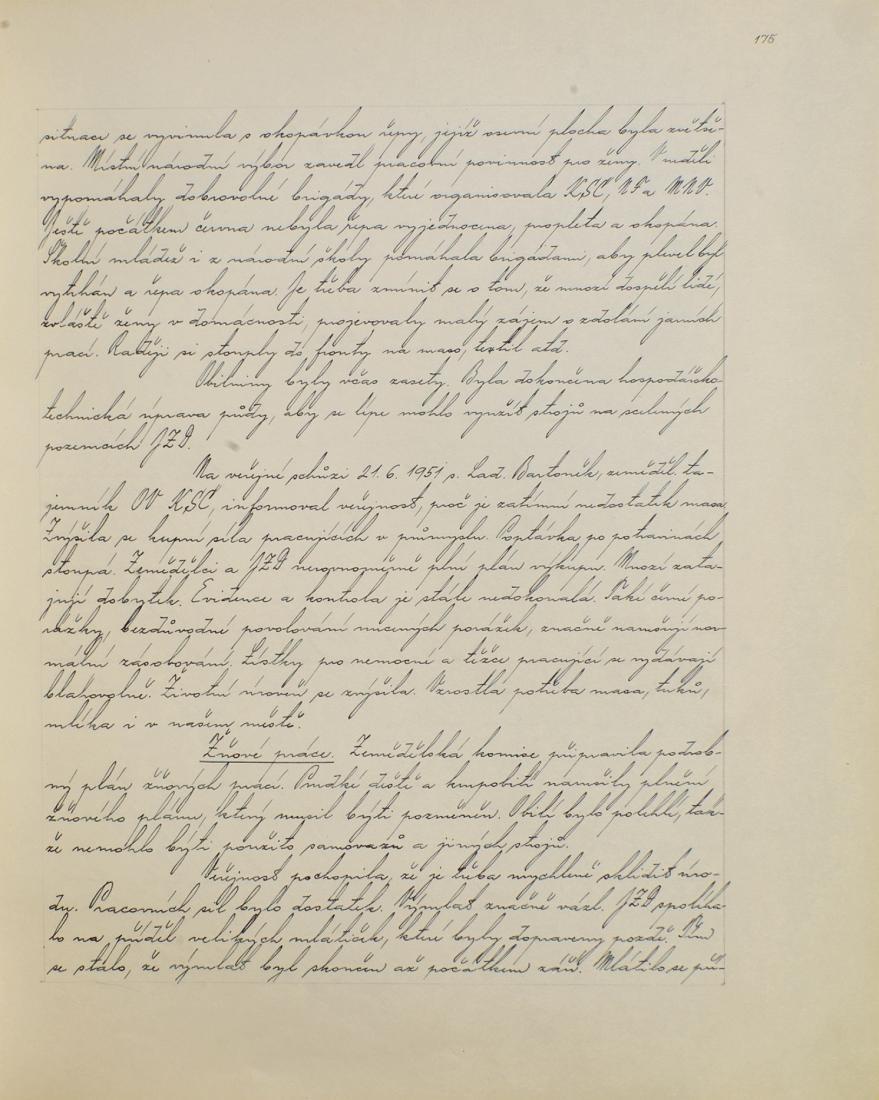 175
situace se vyvinula s okopávkou řepy, jejíž osevní plocha byla zvětše-
na. Místní národní výbor zavedl pracovní povinnost pro ženy. V neděli
vypomáhaly dobrovolné brigády, které organisovala KSČ, NF a MNV.
Ještě počátkem června nebyla řepa vyjednocena, propleta a okopána.
Školní mládež i z národní školy pomáhala brigádami, aby plevel byl
vytrhán a řepa okopána. Je třeba zmínit se o tom, že mnozí dospělí lidé,
zvláště ženy v domácnosti, projevovaly malý zájem o zdolání jarních
prací. Raději si stouply do fronty na maso, textil atd.
Obilniny byly včas zasety. Byla dokončena hospodářsko-
technická úprava půdy, aby se lépe mohlo využít strojů na scelených
pozemcích JZD.
Na veřejné schůzi 21.6. 1951 s. Lad. Bartoněk, zeměděl. ta-
jemník OV KSČ, informoval veřejnost, proč je zatímní nedostatek masa.
Zvýšila se kupní síla pracujících v průmyslu. Poptávka po potravinách
stoupá. Zemědělci a JZD nerovnoměrně plní plán výkupu. Mnozí zata-
jují dobytek. Evidence a kontrola je stále nedokonalá. Také černé po-
rážky, bezdůvodné povolování nucených porážek, značně narušují nor-
mální zásobování. Lístky pro nemocné a těžce pracující se vydávají
blahovolně. Životní úroveň se zvýšila. Vzrostla potřeba masa, tuků,
mléka i v našem městě.
Žňové práce. Zemědělská komise připravila podrob-
ný plán žňových prací. Prudké deště a krupobití narušily plnění
žňového plánu, který musil býti pozměněn. Obilí bylo polehlé, tak-
že nemohlo býti použito samovazů a jiných strojů.
Veřejnost pochopila, že je třeba urychleně sklidit úro-
du. Pracovních sil bylo dostatek. Výmlat značně vázl. JZD spoléha-
lo na příděl velikých mlátiček, které byly dopraveny pozdě. Tím
se stalo, že výmlat byl skončen až počátkem září. Mlátilo se při-